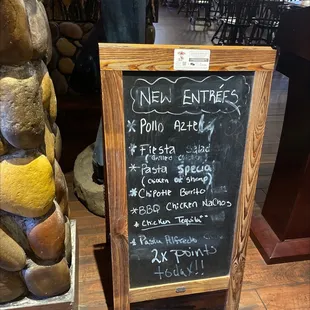 NEW ENTRÉES
* Pollo Azteca
* Fiesta Salad
(grilled chicken)
* Pasta Special
(cream of shrimp)
* Chipotle Burrito
* BBQ Chicken Nachos
* Chicken Tequila **
* Pasta Alfredo
2x points
today!!